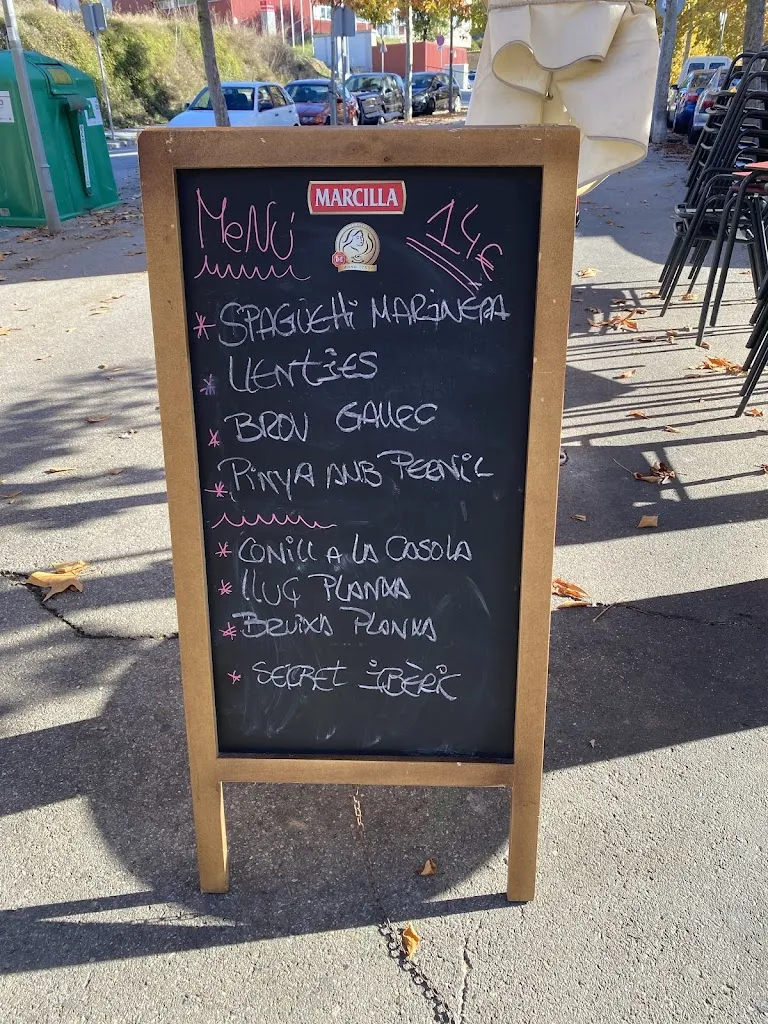 MARCILLA
MENÚ 14€
* SPAGUETHI MARINERA
* LLENTIES
* BROU GALLEC
* PINYA AMB PERNIL
* CONILL A LA CASOLA
* LLUÇ PLANXA
* BRUIXA PLANXA
* SECRET IBÈRIC